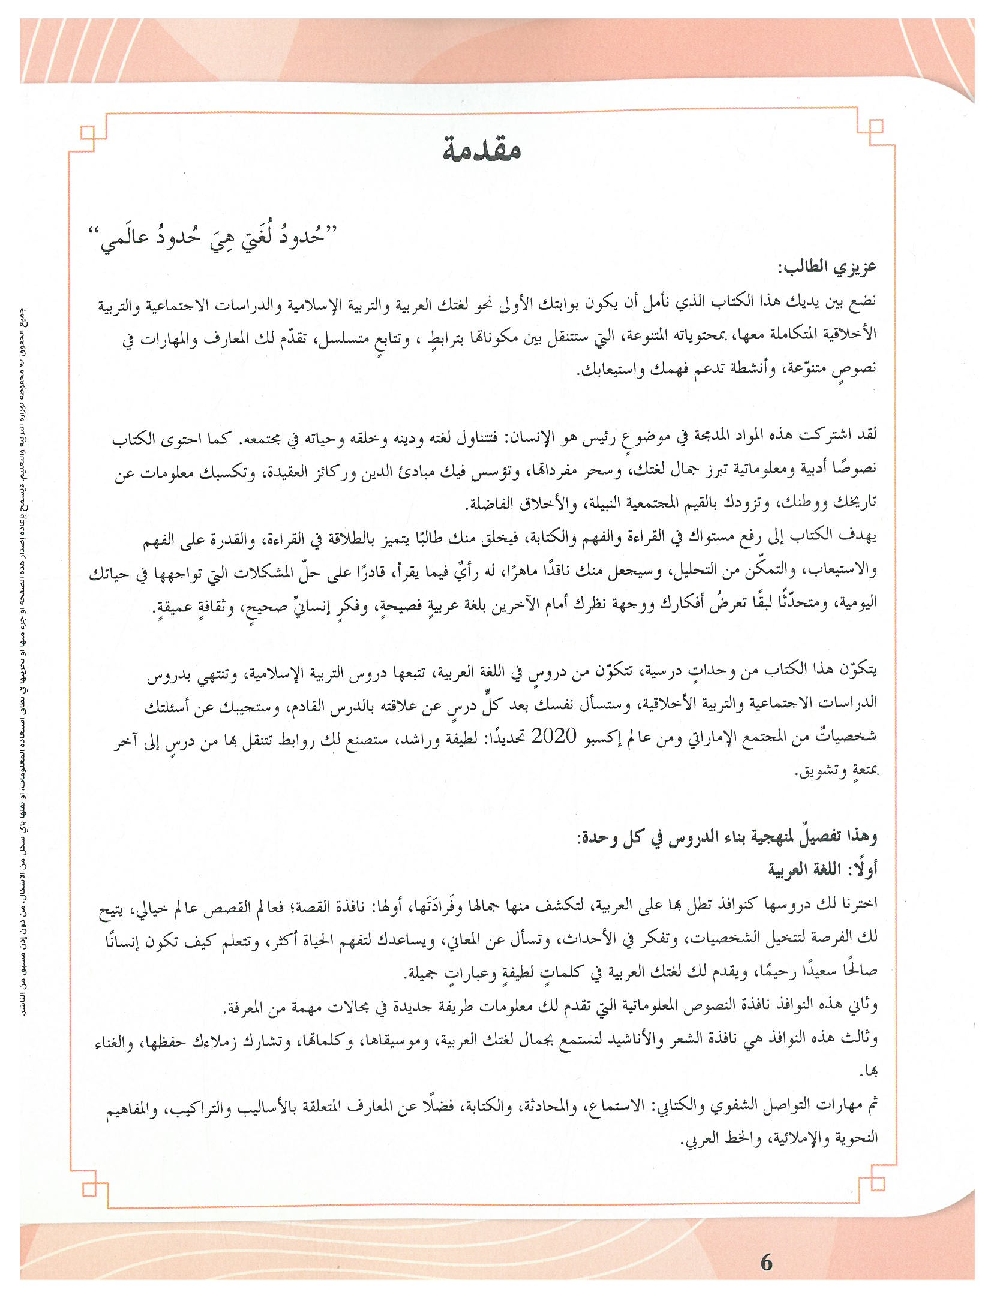 مقدمة
”حُدودُ لُغَتي هِيَ حُدودُ عالَمي“
عزيزي الطالب:
نضع بين يديك هذا الكتاب الذي نأمل أن يكون بوابتك الأولى نحو لغتك العربية والتربية الإسلامية والدراسات الاجتماعية والتربية
الأخلاقية المتكاملة معها، بمحتوياته المتنوعة، التي ستتنقل بين مكوناتها بترابطٍ ، وتتابعٍ متسلسل، تقدّم لك المعارف والمهارات في
نصوصٍ متنوّعة، وأنشطة تدعم فهمك واستيعابك.
لقد اشتركت هذه المواد المدمجة في موضوعٍ رئيس هو الإنسان: فتتناول لغته ودينه وخلقه وحياته في مجتمعه. كما احتوى الكتاب
نصوصًا أدبية ومعلوماتية تبرز جمال لغتك، وسحر مفرداتها، وتؤسس فيك مبادئ الدين وركائز العقيدة، وتكسبك معلومات عن
تاريخك ووطنك، وتزودك بالقيم المجتمعية النبيلة، والأخلاق الفاضلة.
يهدف الكتاب إلى رفع مستواك في القراءة والفهم والكتابة، فيخلق منك طالبًا يتميز بالطلاقة في القراءة، والقدرة على الفهم
والاستيعاب، والتمكّن من التحليل، وسيجعل منك ناقدًا ماهرًا، له رأيٌ فيما يقرأ، قادرًا على حلّ المشكلات التي تواجهها في حياتك
اليومية، ومتحدّثًا لبقًا تعرضُ أفكارك ووجهة نظرك أمام الآخرين بلغة عربيةٍ فصيحةٍ، وفكرٍ إنسانيٍّ صحيحٍ، وثقافةٍ عميقةٍ.
يتكوّن هذا الكتاب من وحداتٍ درسية، تتكوّن من دروسٍ في اللغة العربية، تتبعها دروس التربية الإسلامية، وتنتهي بدروس
الدراسات الاجتماعية والتربية الأخلاقية، وستسأل نفسك بعد كلِّ درسٍ عن علاقته بالدرس القادم، وستجيبك عن أسئلتك
شخصياتٌ من المجتمع الإماراتي ومن عالم إكسبو 2020 تحديدًا: لطيفة وراشد، ستصنع لك روابط تتنقل بها من درسٍ إلى آخر
بمتعةٍ وتشويق.
وهذا تفصيلٌ لمنهجية بناء الدروس في كل وحدة:
أولًا: اللغة العربية
اخترنا لك دروسها كنوافذ تطل بها على العربية، لتكشف منها جمالها وفَرادَتَها، أولها: نافذة القصة؛ فعالم القصص عالم خيالي، يتيح
لك الفرصة لتتخيل الشخصيات، وتفكر في الأحداث، وتسأل عن المعاني، ويساعدك لتفهم الحياة أكثر، وتتعلم كيف تكون إنسانًا
صالحًا سعيدًا رحيمًا، ويقدم لك لغتك العربية في كلماتٍ لطيفةٍ وعباراتٍ جميلة.
وثاني هذه النوافذ نافذة النصوص المعلوماتية التي تقدم لك معلومات طريفة جديدة في مجالات مهمة من المعرفة.
وثالث هذه النوافذ هي نافذة الشعر والأناشيد لتستمع بجمال لغتك العربية، وموسيقاها، وكلماتها، وتشارك زملاءك حفظها، والغناء
بها.
ثم مهارات التواصل الشفوي والكتابي: الاستماع، والمحادثة، والكتابة، فضلًا عن المعارف المتعلقة بالأساليب والتراكيب، والمفاهيم
النحوية والإملائية، والخط العربي.
6